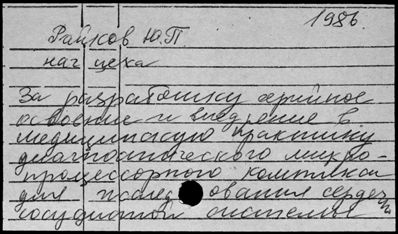 1986.
Райков Ю.П.
нач цеха
За разработку серийное
освоение и внедрение в
медицинскую практику
диагностического микро-
процессорного комплекса
для исследования сердеч/
сосудистой системы